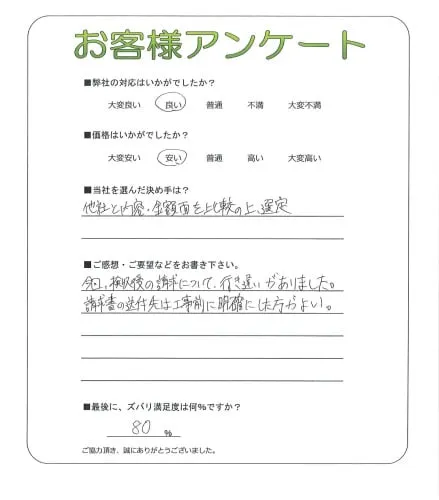 お客様アンケート
■弊社の対応はいかがでしたか？
大変良い 良い 普通 不満 大変不満
■価格はいかがでしたか？
大変安い 安い 普通 高い 大変高い
■当社を選んだ決め手は？
他社と内容・金額面を比較の上、選定
■ご感想・ご要望などをお書き下さい。
今回、検収後の請求について、行き違いがありました。
請求書の送付先は工事前に明確にした方がよい。
■最後に、ズバリ満足度は何%ですか？
80 %
ご協力頂き、誠にありがとうございました。